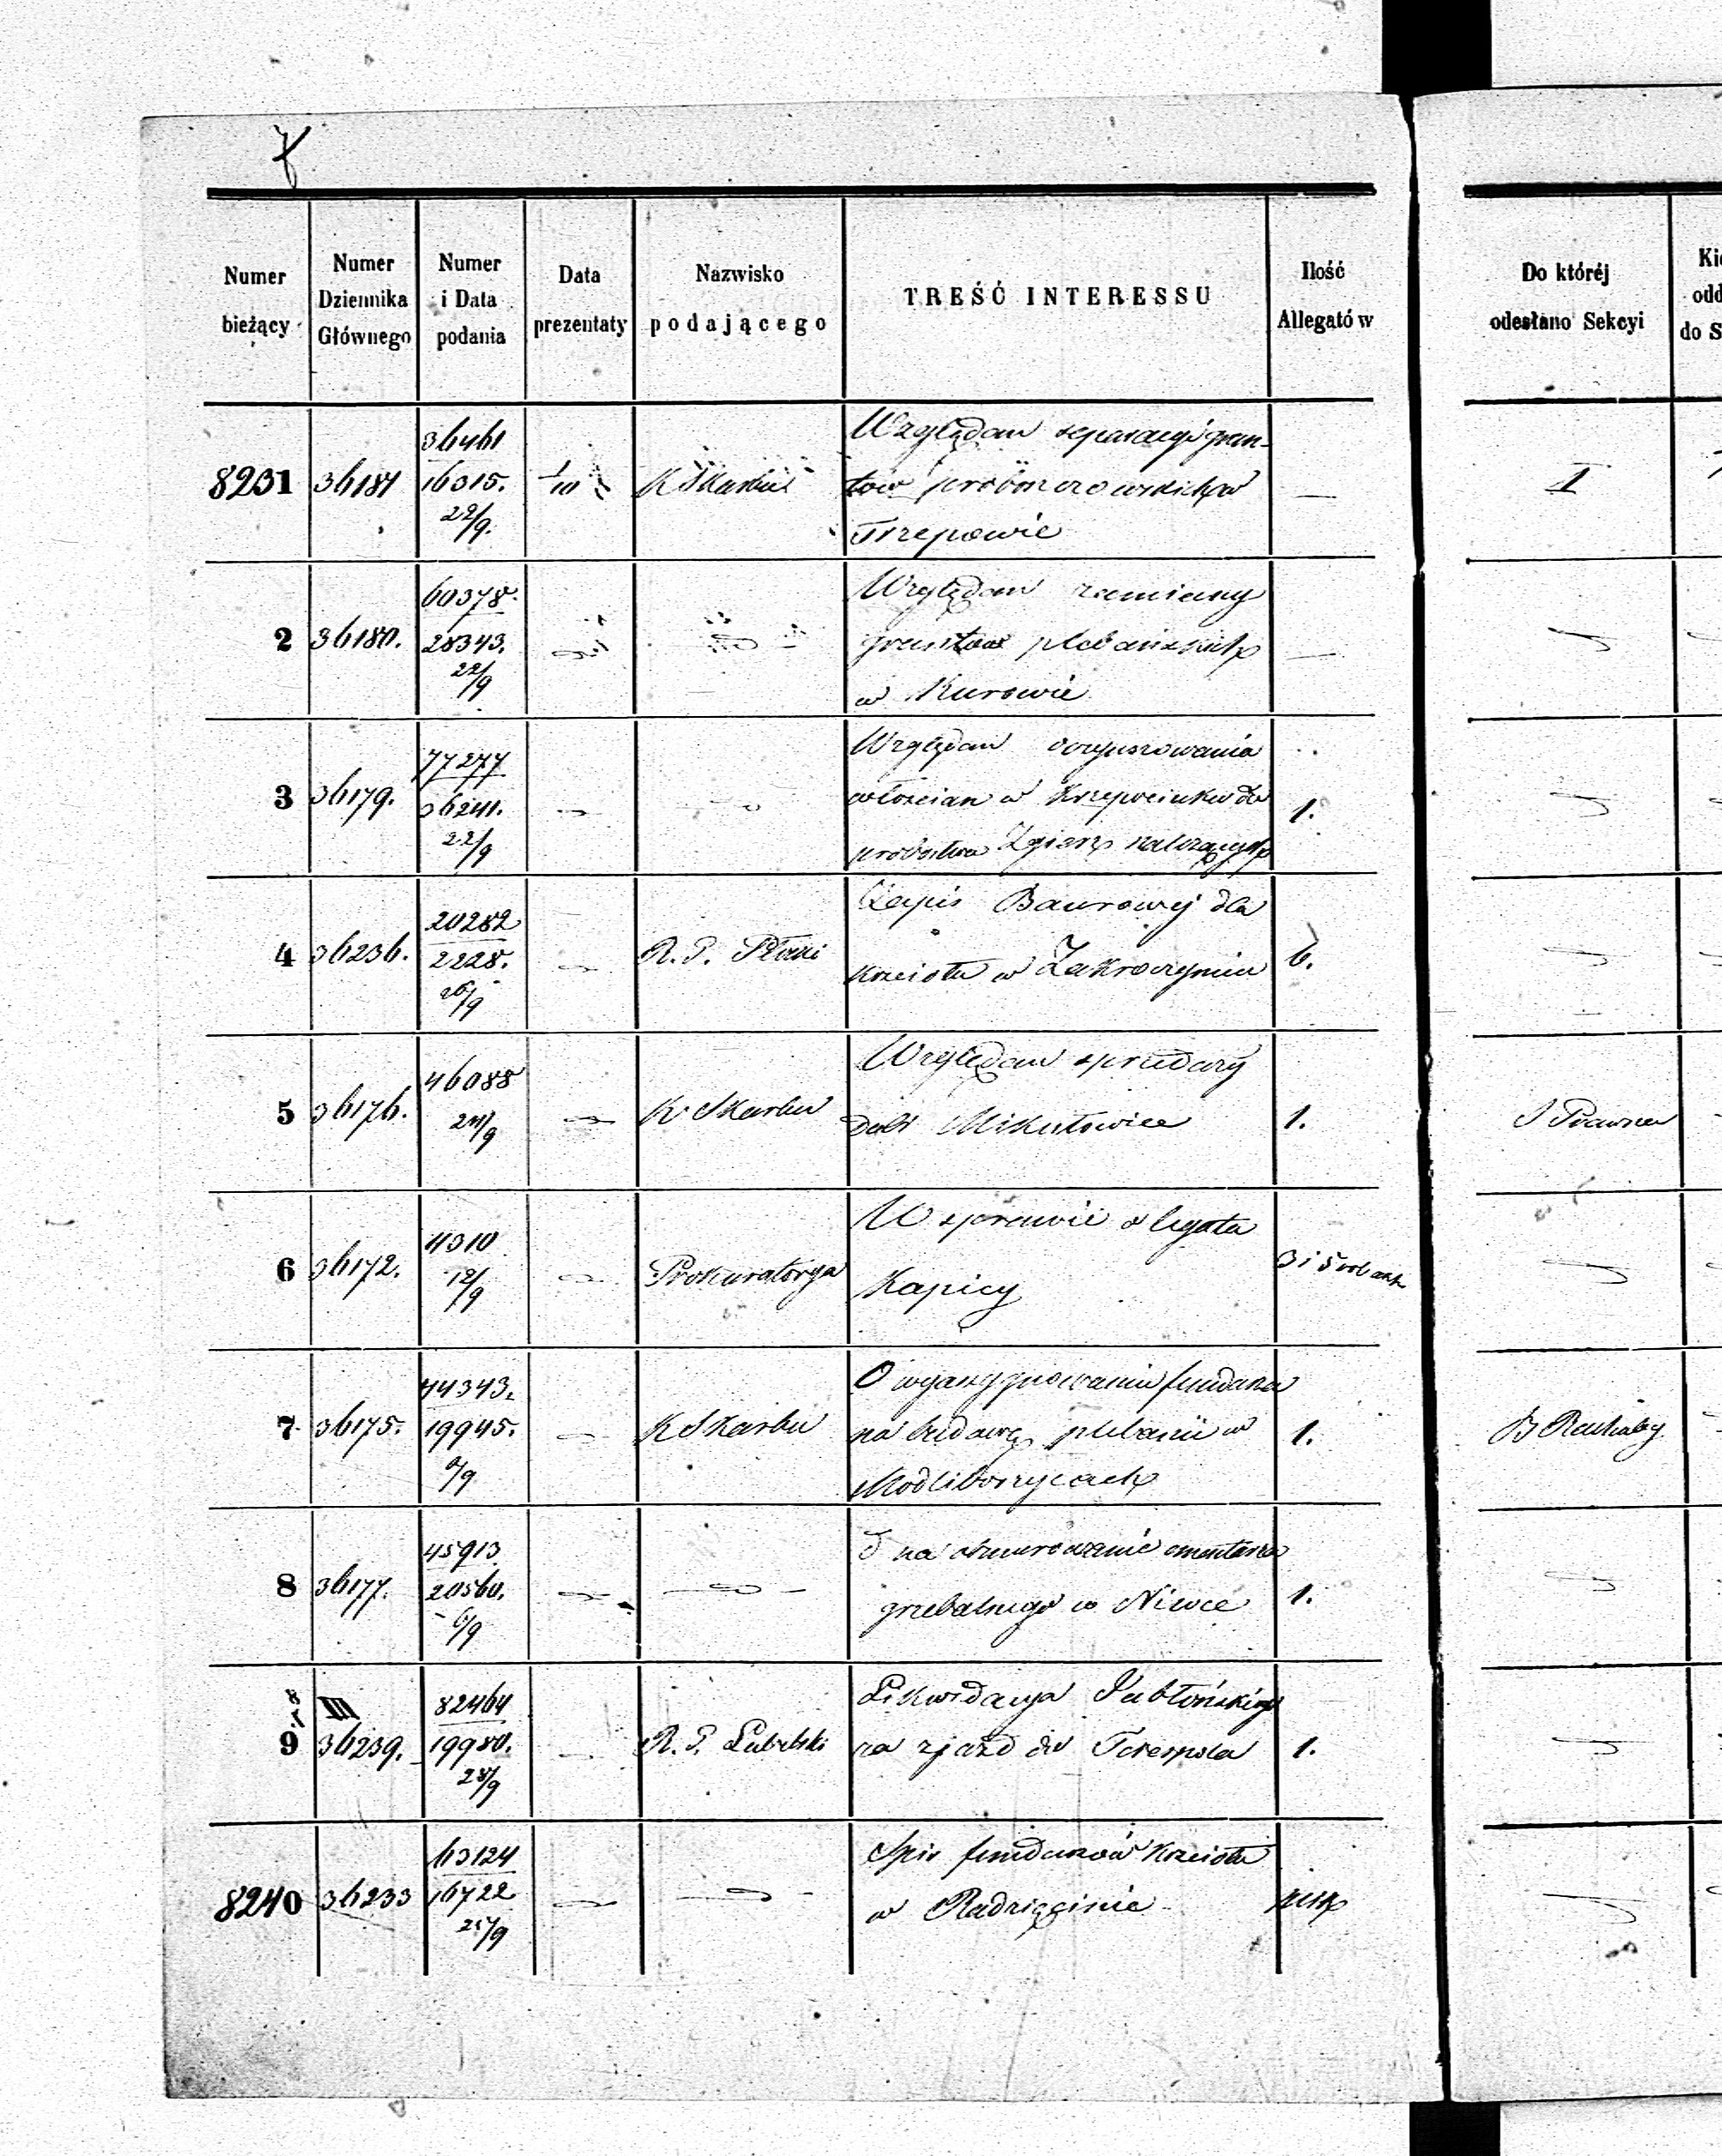 Numer bieżący
Numer Dziennika Głównego
Numer i Data podania
Data prezentaty
Nazwisko podającego
TREŚĆ INTERESSU
Ilość Allegatów
Do któréj odesłano Sekcyi
8231
36181
36461
16315.
22/9.
1/10
K Skarbu
Względem separacyi grun-
tów proboszczowskich w
Trzepowie
—
I
2
36180.
60378.
28343.
22/9
Względem zamiany
gruntów plebańskich
w Kurowie
—
3
36179.
77277
36241.
22/9
Względem oczynszowania
włościan w Krzepocinku do
probostwa Zgierz należących
1.
4
36236.
20282
2228.
26/9
R. G. Płocki
Zapis Baurowej dla
kościoła w Zakroczymiu
6.
5
36176.
46088
24/9
K Skarbu
Względem sprzedaży
dóbr Mikułowice
1.
S Prawna
6
36172.
4310
12/9
Prokuratorya
W sprawie o legata
Kapicy
3 i 5 vol akt
7
36175.
44343.
19945.
K Skarbu
O wyassygnowaniu fundusz
na budowę plebanii w
Modliborzycach
1.
B Rachuby
8
36177.
45913
20560.
6/9
D na obmurowanie cmentarza
grzebalnego w Niwce
1.
9
III
36239.
82464
19980.
28/9
R. G. Lubelski
Likwidacya Jabłońskiego
za zjazd do Terespola
1.
8240
36233
63124
16722
25/9
Spis funduszów kościoła
w Radzięcinie